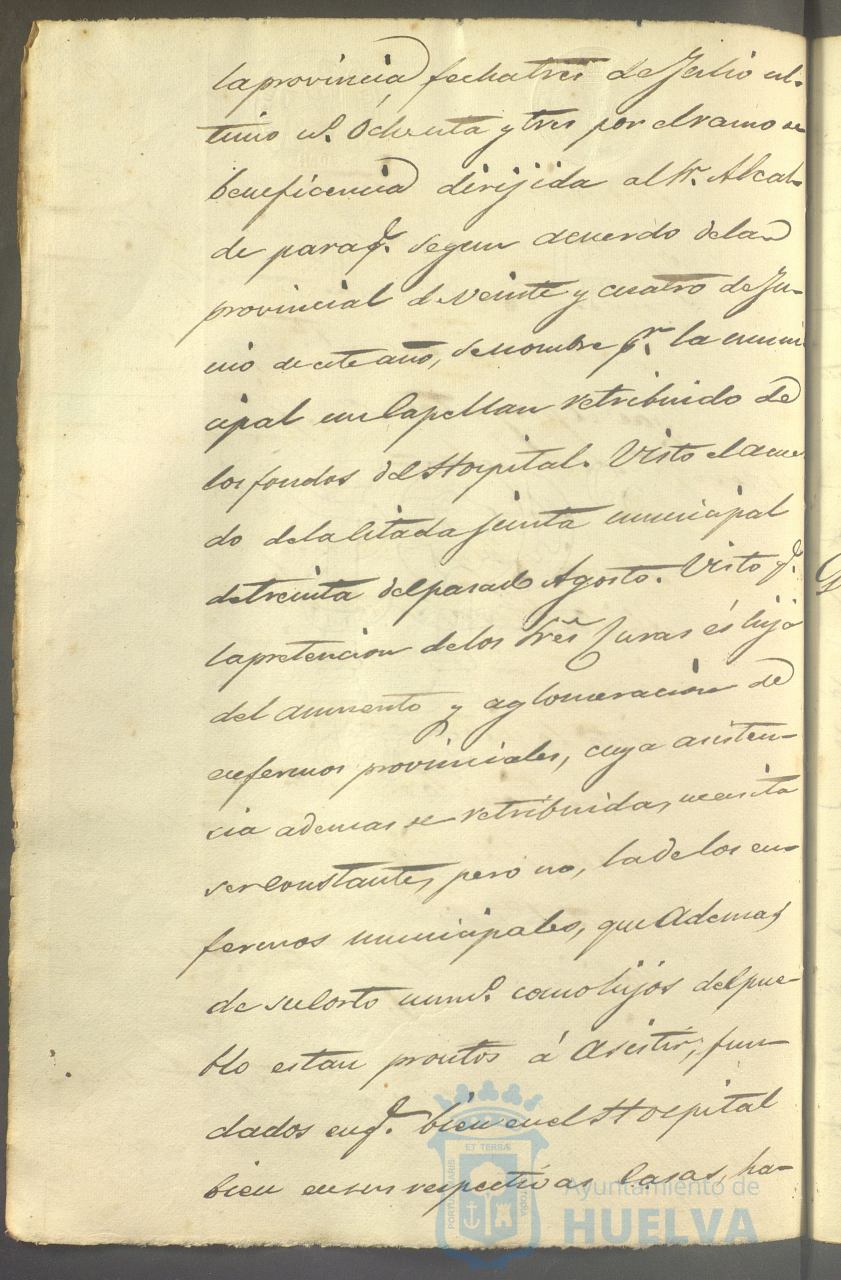 la provincia, fecha tres de Julio ul-
timo nº. Ochenta y tres por el ramo de
beneficencia dirijida al Sr. Alcal-
de para q. segun acuerdo de la
provincial de Veinte y cuatro de Ju-
nio de este año, se nombre pr. la muni
cipal un Capellan retribuido de
los fondos del Hospital. Visto el acuer
do de la citada Junta municipal
de treinta del pasado Agosto. Visto q.
la pretencion de los Sres Curas és hija
del aumento y aglomeracion de
enfermos provinciales, cuya asisten-
cia ademas se retribuida, necesita
ser constante, pero no, la de los en-
fermos municipales, que Ademas
de su corto numº. como hijos del pue-
blo estan prontos á Asistir, fun-
dados en q. bien en el Hospital
bien en sus respectivas Casas, ha-
PORTUS MARIS
ET TERRÆ
CUSTODIA
Ayuntamiento de
HUELVA